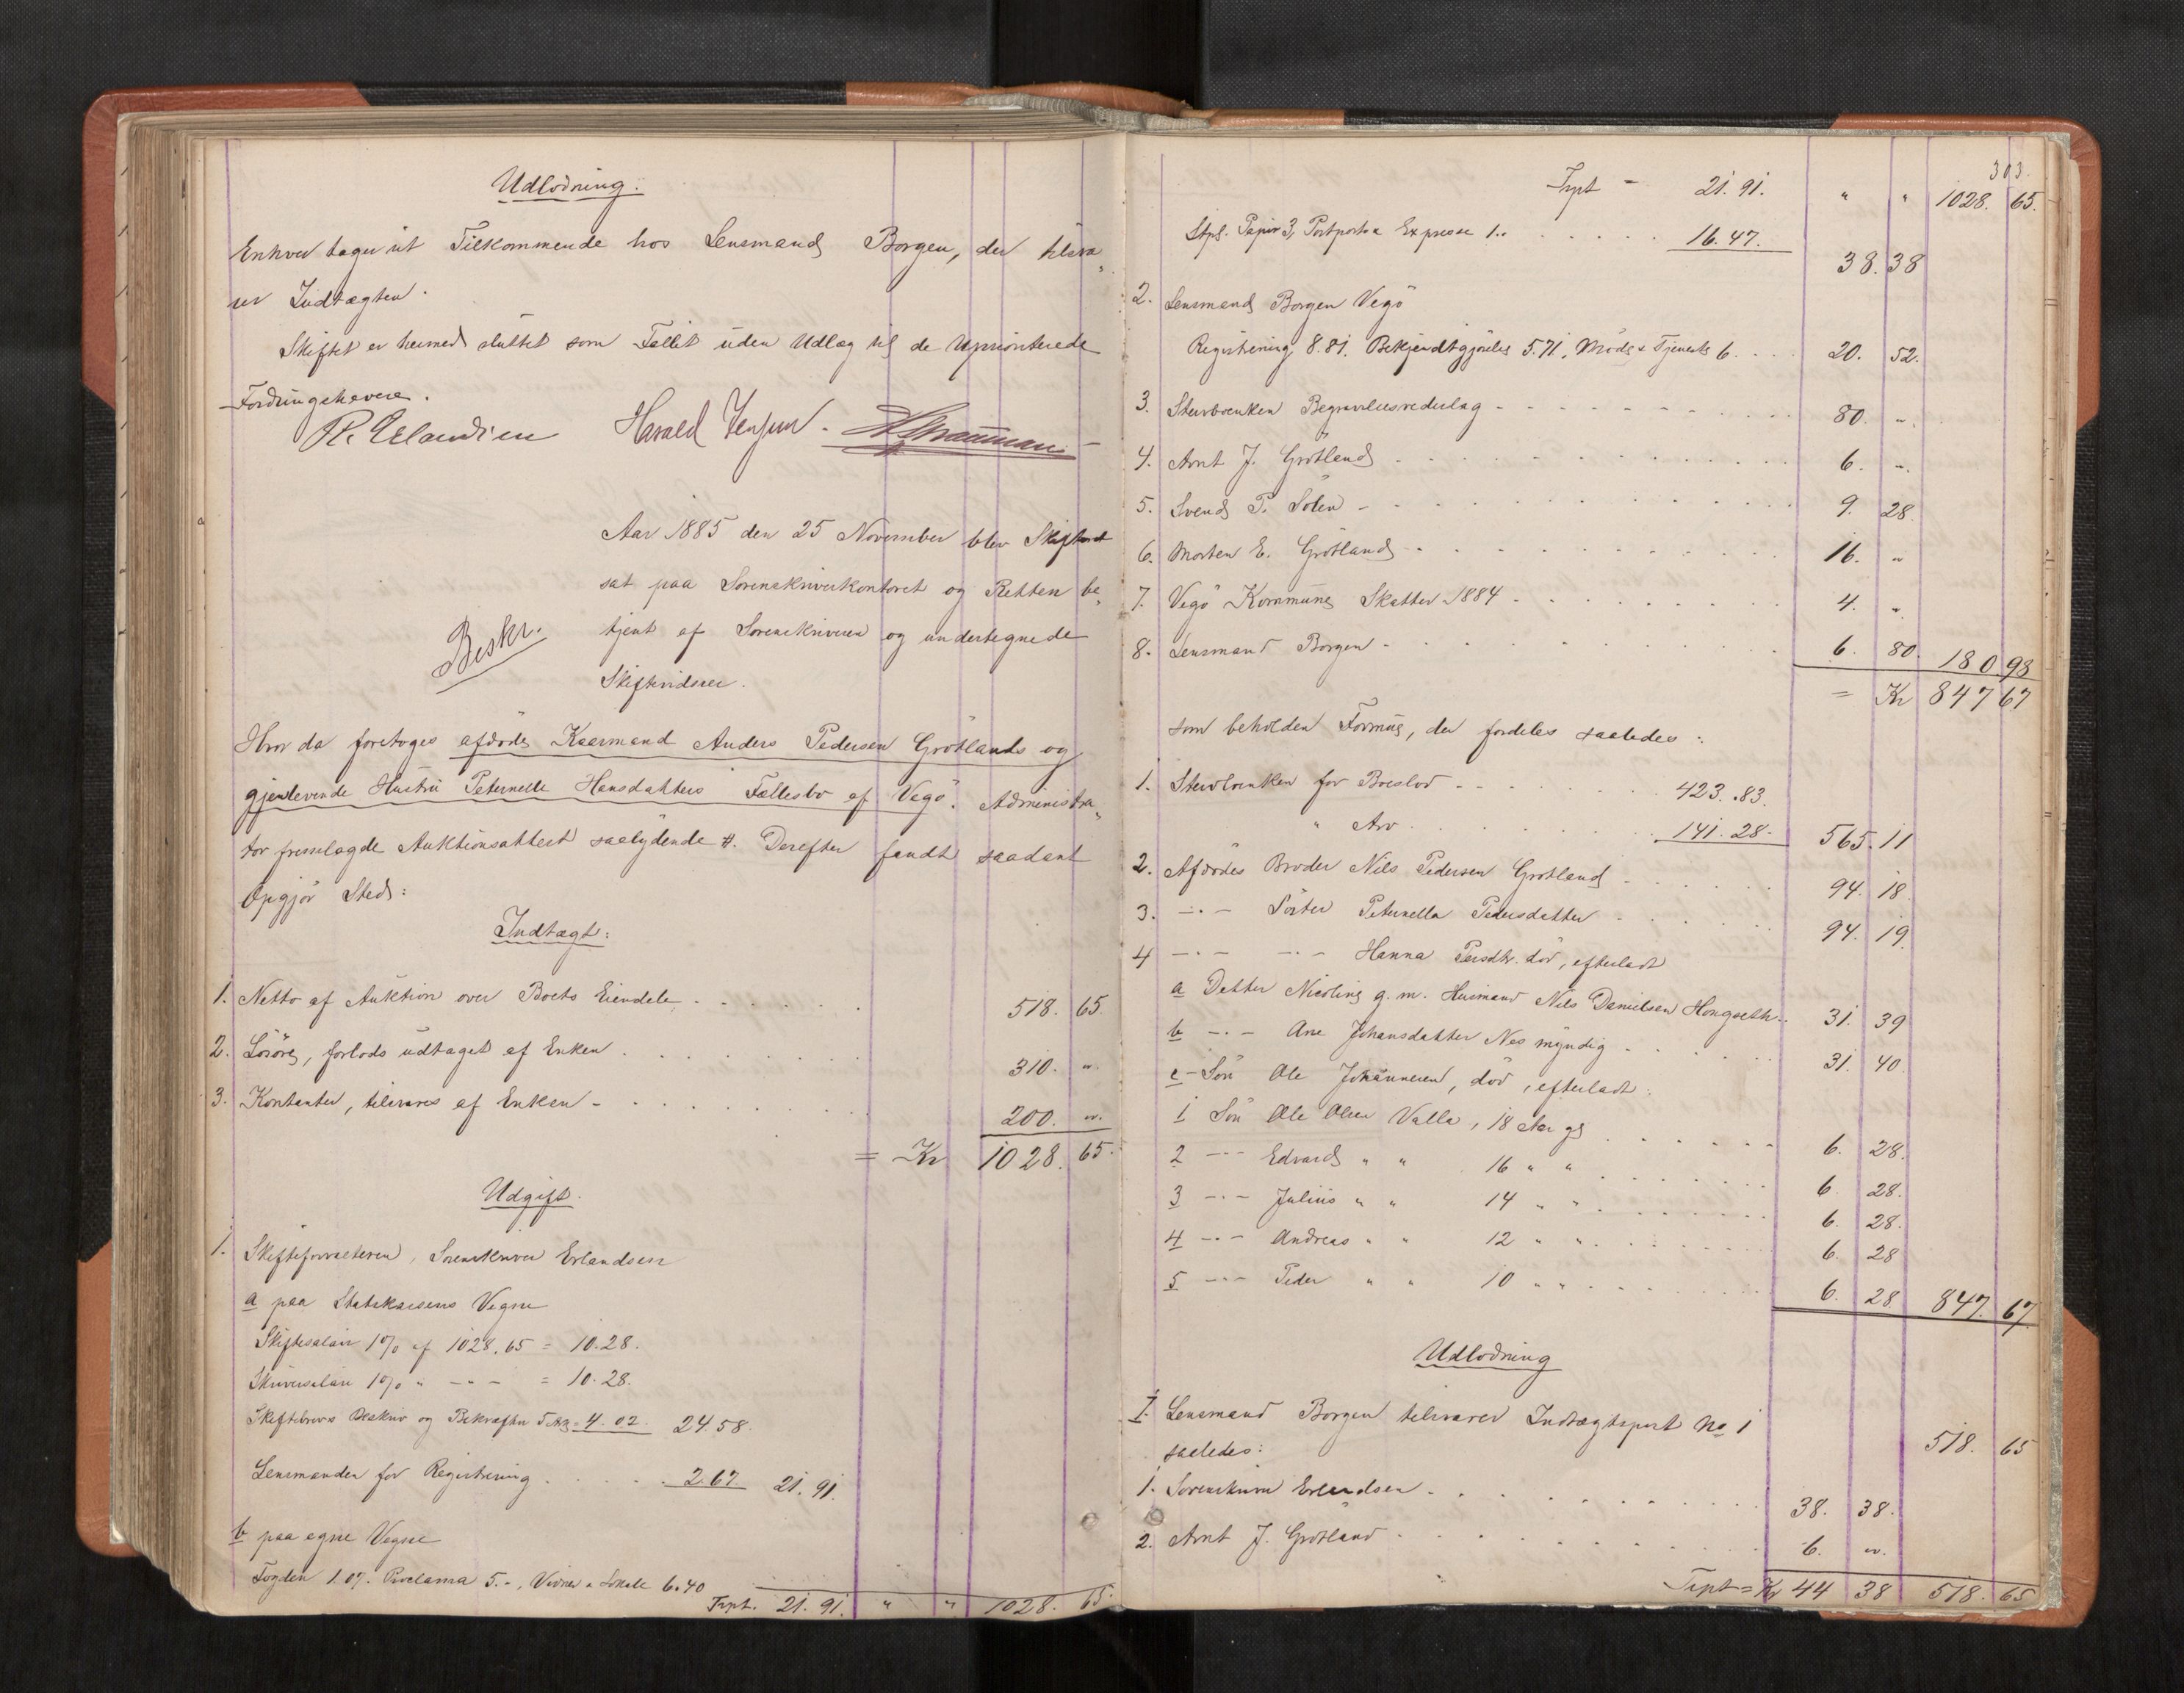 Udlodning:
Enhver tager sit Tilkommende hos Lensmand Borgen, der tilsva„
rer Indtægten.
Skiftet er hermed sluttet som Fallit uden Udlæg til de Uprioriterede
Fordringshavere.
R. Erlandsen Harald Jensen.
Aar 1885 den 25 November blev Skifteret
sat paa Sorenskriverkontoret og Retten be„
tjent af Sorenskriveren og undertegnede
Skiftevidner.
Beskr.
Hvor da foretoges afdøde Kaarmand Anders Pedersen Grøtlands og
gjenlevende Hustru Peternelle Hansdatters Fællesbo af Vegø. Administra„
tor fremlagde Auktionsattest saalydende #. Derefter fandt saadant
Opgjør Sted:
Indtægt:
1. Netto af Auktion over Boets Eiendele 518. 65.
2. Løsøre, forlods udtaget af Enken 310. "
3. Kontanter, tilsvares af Enken 200. "
= Kr 1028. 65.
Udgift.
1. Skifteforvalteren, Sorenskriver Erlandsen
a paa Statskassens Vegne
Skiftesalær 1% af 1028.65 = 10.28.
Skriversalær 1% " - " - = 10.28.
Skiftebrevs Beskriv og Bekræftn 5 Ark = 4.02. 24.58.
Lensmanden for Registrering 2.67 21.91.
b paa egne Vegne
Fogden 1.07. Proclama 5.-, Vidner & Lokale 6.40
Trpt. 21.91. " " 1028. 65.
303.
Trpt - 21.91. " " 1028. 65.
Stpl. Papir 3, Postporto & Expresse 1.. 16.47. 38. 38
2. Lensmand Borgen Vegø
Registrering 8.81. Bekjendtgjørelse 5.71, Møde & Tjeneste 6. 20. 52.
3. Stervboenken Begravelsesvederlag 80. "
4. Arnt J. Grøtland 6. "
5. Svend P. Sølen 9. 28
6. Morten E. Grøtland 16. "
7. Vegø Kommune Skatter 1884 4. "
8. Lensmand Borgen 6. 80. 180 98
= Kr 847 67
som beholden Formue, der fordeles saaledes:
1. Stervboenken for Boeslod 423.83.
" Arv 141.28. 565. 11
2. Afdødes Broder Nils Pedersen Grøtland 94. 18.
3. -"- Søster Peternella Pedersdatter 94. 19.
4 -"- -"- Hanna Persdtr. død, efterladt
a Datter Nicoline g.m. Husmand Nils Danielsen Hongseth 31. 39
b -"- Ane Johansdatter Nes myndig 31. 40
c - Søn Ole Johannesen, død, efterladt:
1 Søn Ole Olsen Valla, 18 Aar gl 6. 28.
2 -"- Edvard " " 16 " " 6. 28.
3 -"- Julius " " 14 " " 6. 28.
4 -"- Andreas " " 12 " " 6. 28
5 -"- Peder " " 10 " " 6. 28 847. 67.
Udlodning
I. Lensmand Borgen tilsvarer Indtægtspost No 1 518. 65
saaledes:
1. Sorenskriver Erlandsen 38. 38.
2. Arnt J. Grøtland 6. "
Trpt = Kr 44 38 518. 65